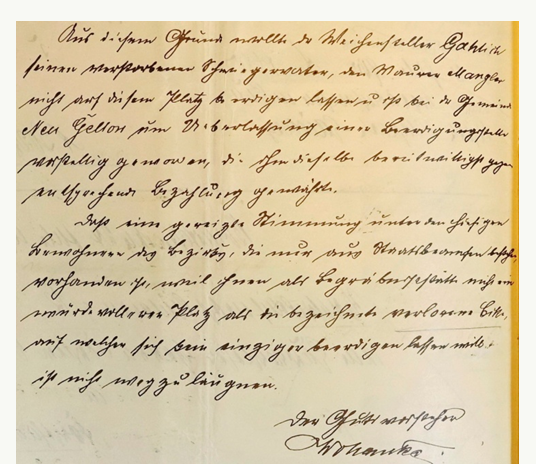 Aus diesem Grund wollte der Weichensteller Gahlich
seinen verstorbenen Schwiegervater, den Maurer Mangler
nicht auf diesem Platz beerdigen lassen u ist bei der Gemeinde
Neu Geltow um Ueberlassung einer Beerdigungsstelle
vorstellig geworden, die ihm dieselbe bereitwilligst gegen
entsprechende Bezahlung gewährte.
Daß eine gereizte Stimmung unter den hiesigen
Bewohnern des Bezirks, die nur aus Staatsbeamten bestehen
vorhanden ist, weil ihnen als Begräbnisstätte nicht ein
würdevollerer Platz als die bezeichnete verlorene Ecke,
auf welcher sich kein einziger beerdigen lassen will
ist nicht wegzuläugnen.
Der Gutsvorsteher